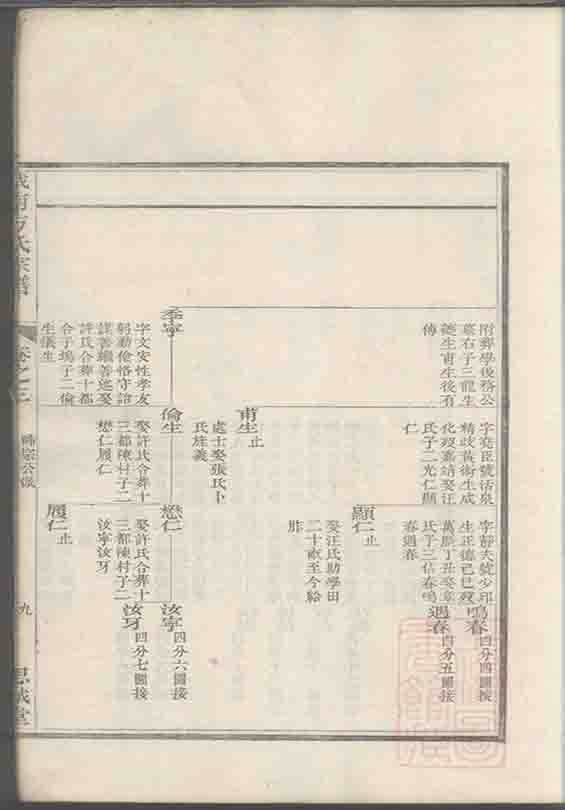 附葬學後務公
墓右子三龍生
德生甫生後有
傳
字堯臣號活泉
精歧黃術生成
化歿嘉靖娶汪
氏子二光仁顯
仁
字靜夫號少邛
生正德己巳歿
萬曆丁丑娶章
氏子三佑春鳴
春遇春
鳴春四分四圖接
遇春四分五圖接
顯仁止
娶汪氏助學田
二十畝至今給
胙
甫生止
處士娶張氏卜
氏旌義
季寧
字文安性孝友
躬勤儉恪守詒
謀善繼善述娶
許氏合葬十都
合子塢子二倫
生儀生
倫生
娶許氏合葬十
三都陳村子二
懋仁履仁
懋仁
娶許氏合葬十
三都陳村子二
汝寧汝牙
汝寧四分六圖接
汝牙四分七圖接
履仁止
方氏宗譜
卷之三
九
思誠堂